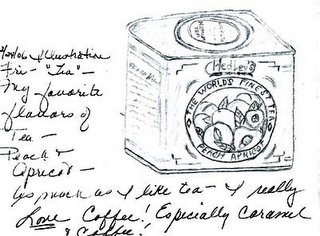 Illustration
Fri - "Tea" -
My favorite
flavors of
Tea -
Peach &
Apricot -
Hedley's
THE WORLD'S FINEST TEA
PEACH APRICOT
As much as I like tea - I really
Love Coffee! Especially Caramel
& Coffee!